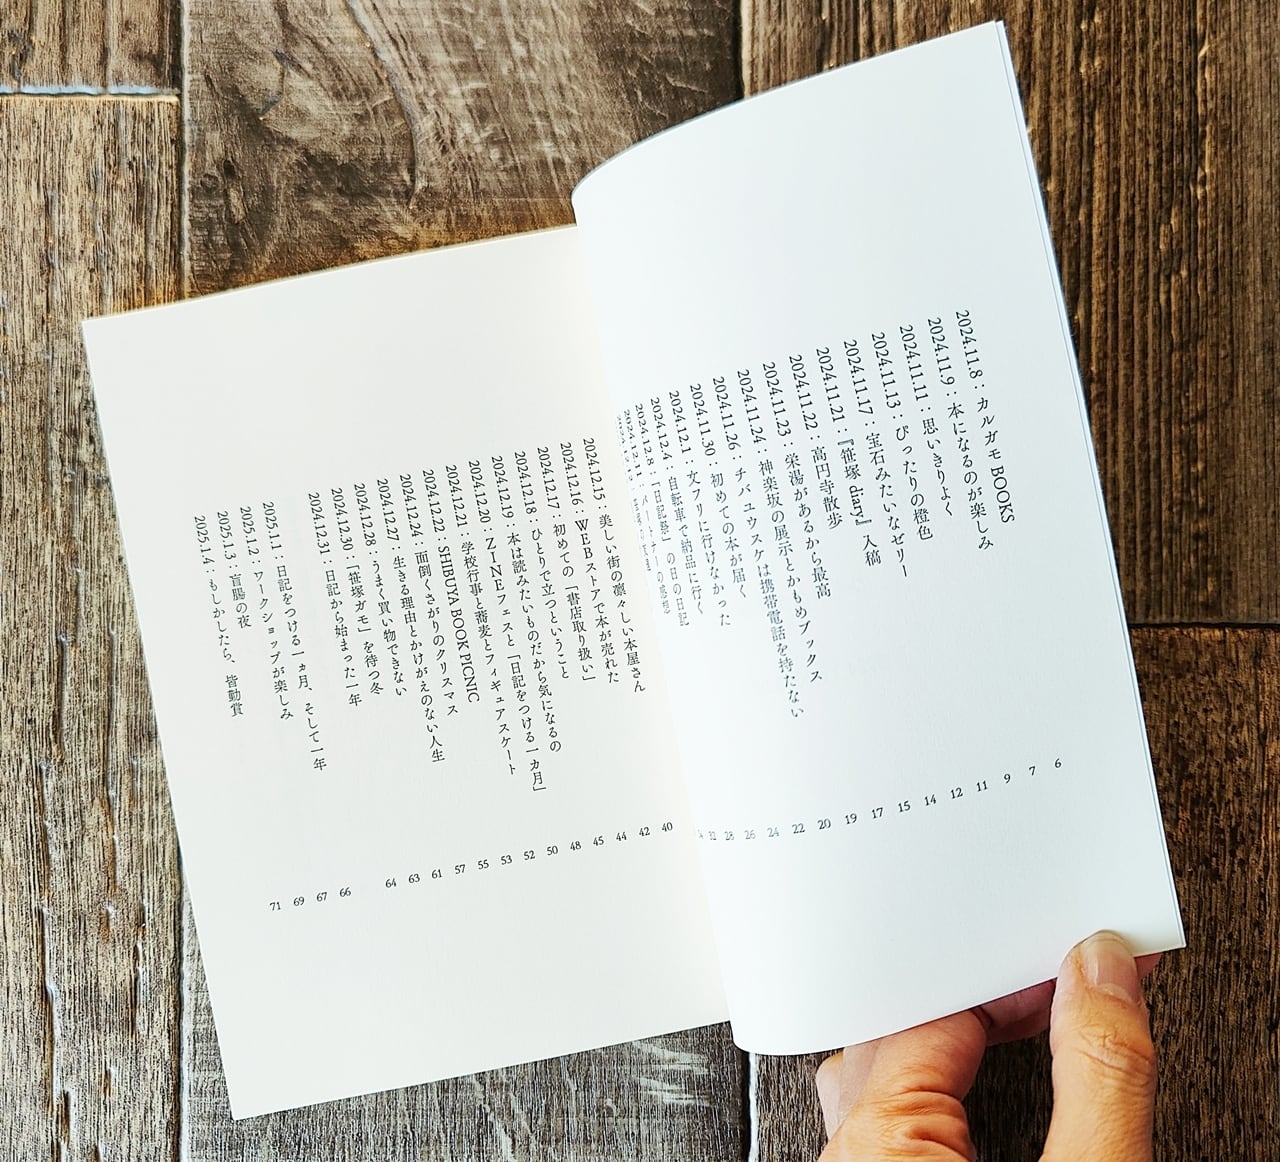 2024.11.8：カルガモ BOOKS 6
2024.11.9：本になるのが楽しみ 7
2024.11.11：思いきりよく 9
2024.11.13：ぴったりの橙色 11
2024.11.17：宝石みたいなゼリー 12
2024.11.21：『笹塚 diary』入稿 14
2024.11.22：高円寺散歩 15
2024.11.23：栄湯があるから最高 17
2024.11.24：神楽坂の展示とかもめブックス 19
2024.11.26：チバユウスケは携帯電話を持たない 20
2024.11.30：初めての本が届く 22
2024.12.1：文フリに行けなかった 24
2024.12.4：自転車で納品に行く 26
2024.12.8：「日記祭」の日の日記 28
2024.12.11： 32
2024.12.15：美しい街の凛々しい本屋さん 40
2024.12.16：WEBストアで本が売れた 42
2024.12.17：初めての「書店取り扱い」 44
2024.12.18：ひとりで立つということ 45
2024.12.19：本は読みたいものだから気になるの 48
2024.12.20：ZINEフェスと「日記をつける一カ月」 50
2024.12.21：学校行事と蕎麦とフィギュアスケート 52
2024.12.22：SHIBUYA BOOK PICNIC 53
2024.12.24：面倒くさがりのクリスマス 55
2024.12.27：生きる理由とかけがえのない人生 57
2024.12.28：うまく買い物できない 61
2024.12.30：「笹塚ガモ」を待つ冬 63
2024.12.31：日記から始まった一年 64
2025.1.1：日記をつける一ヵ月、そして一年 66
2025.1.2：ワークショップが楽しみ 67
2025.1.3：盲腸の夜 69
2025.1.4：もしかしたら、皆勤賞 71